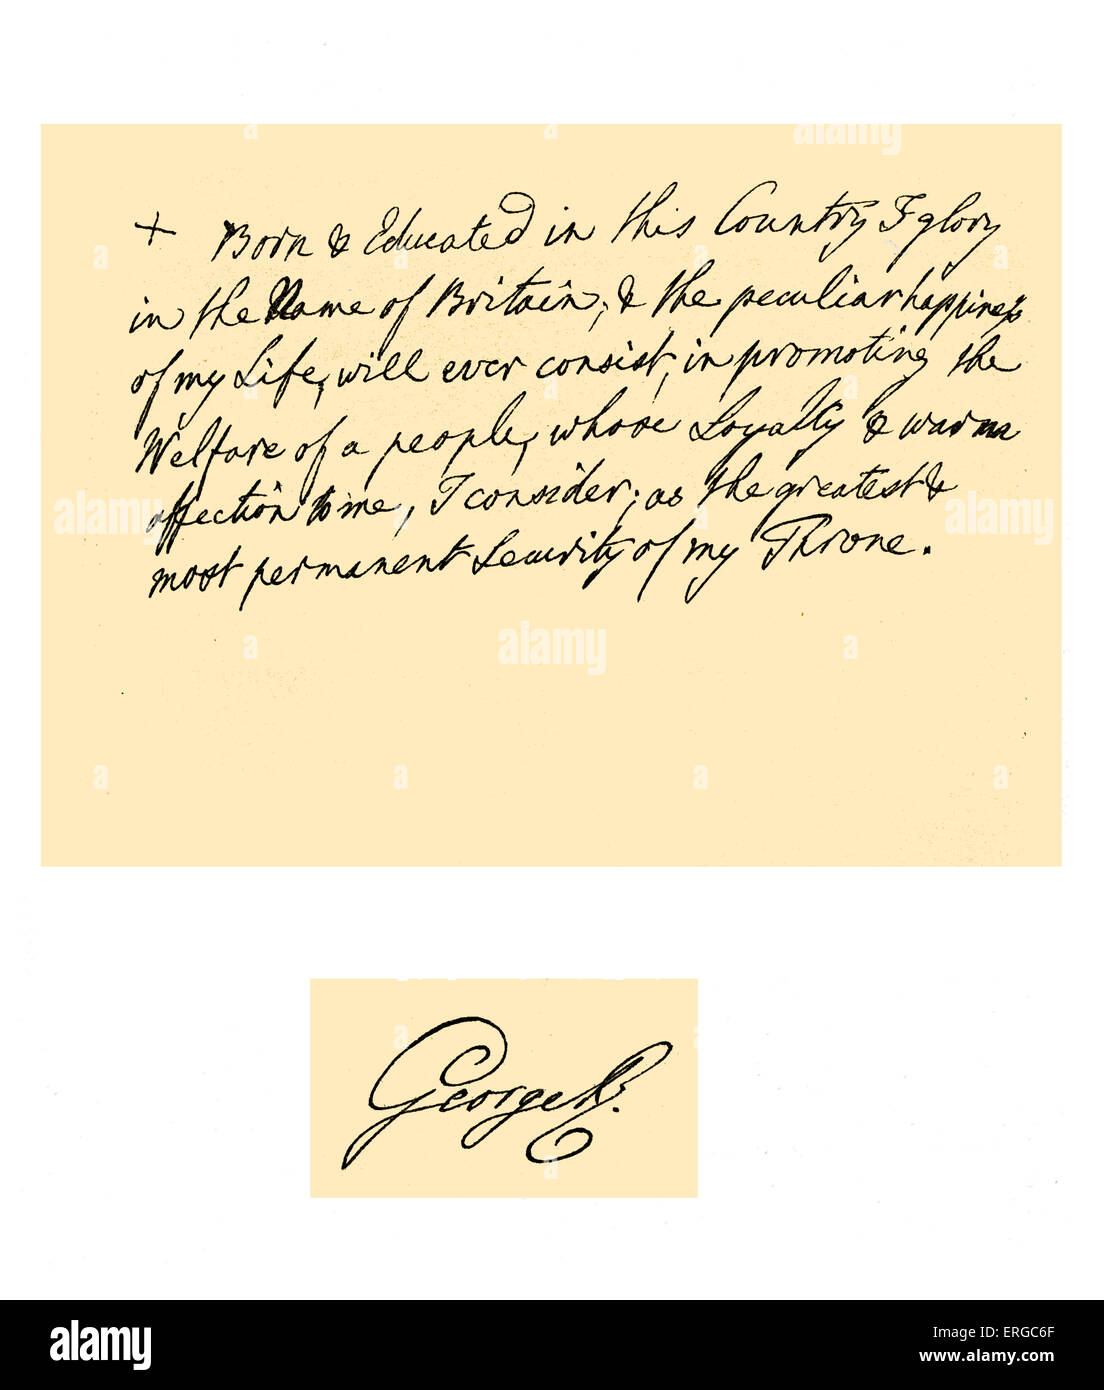 + Born & Educated in this Country I glory
in the Name of Britain; & the peculiar happiness
of my Life, will ever consist, in promoting the
Welfare of a people, whose Loyalty & warm
affection to me, I consider; as the greatest &
most permanent Security of my Throne.
George R.
alamy
Image ID: ERGC6F
www.alamy.com